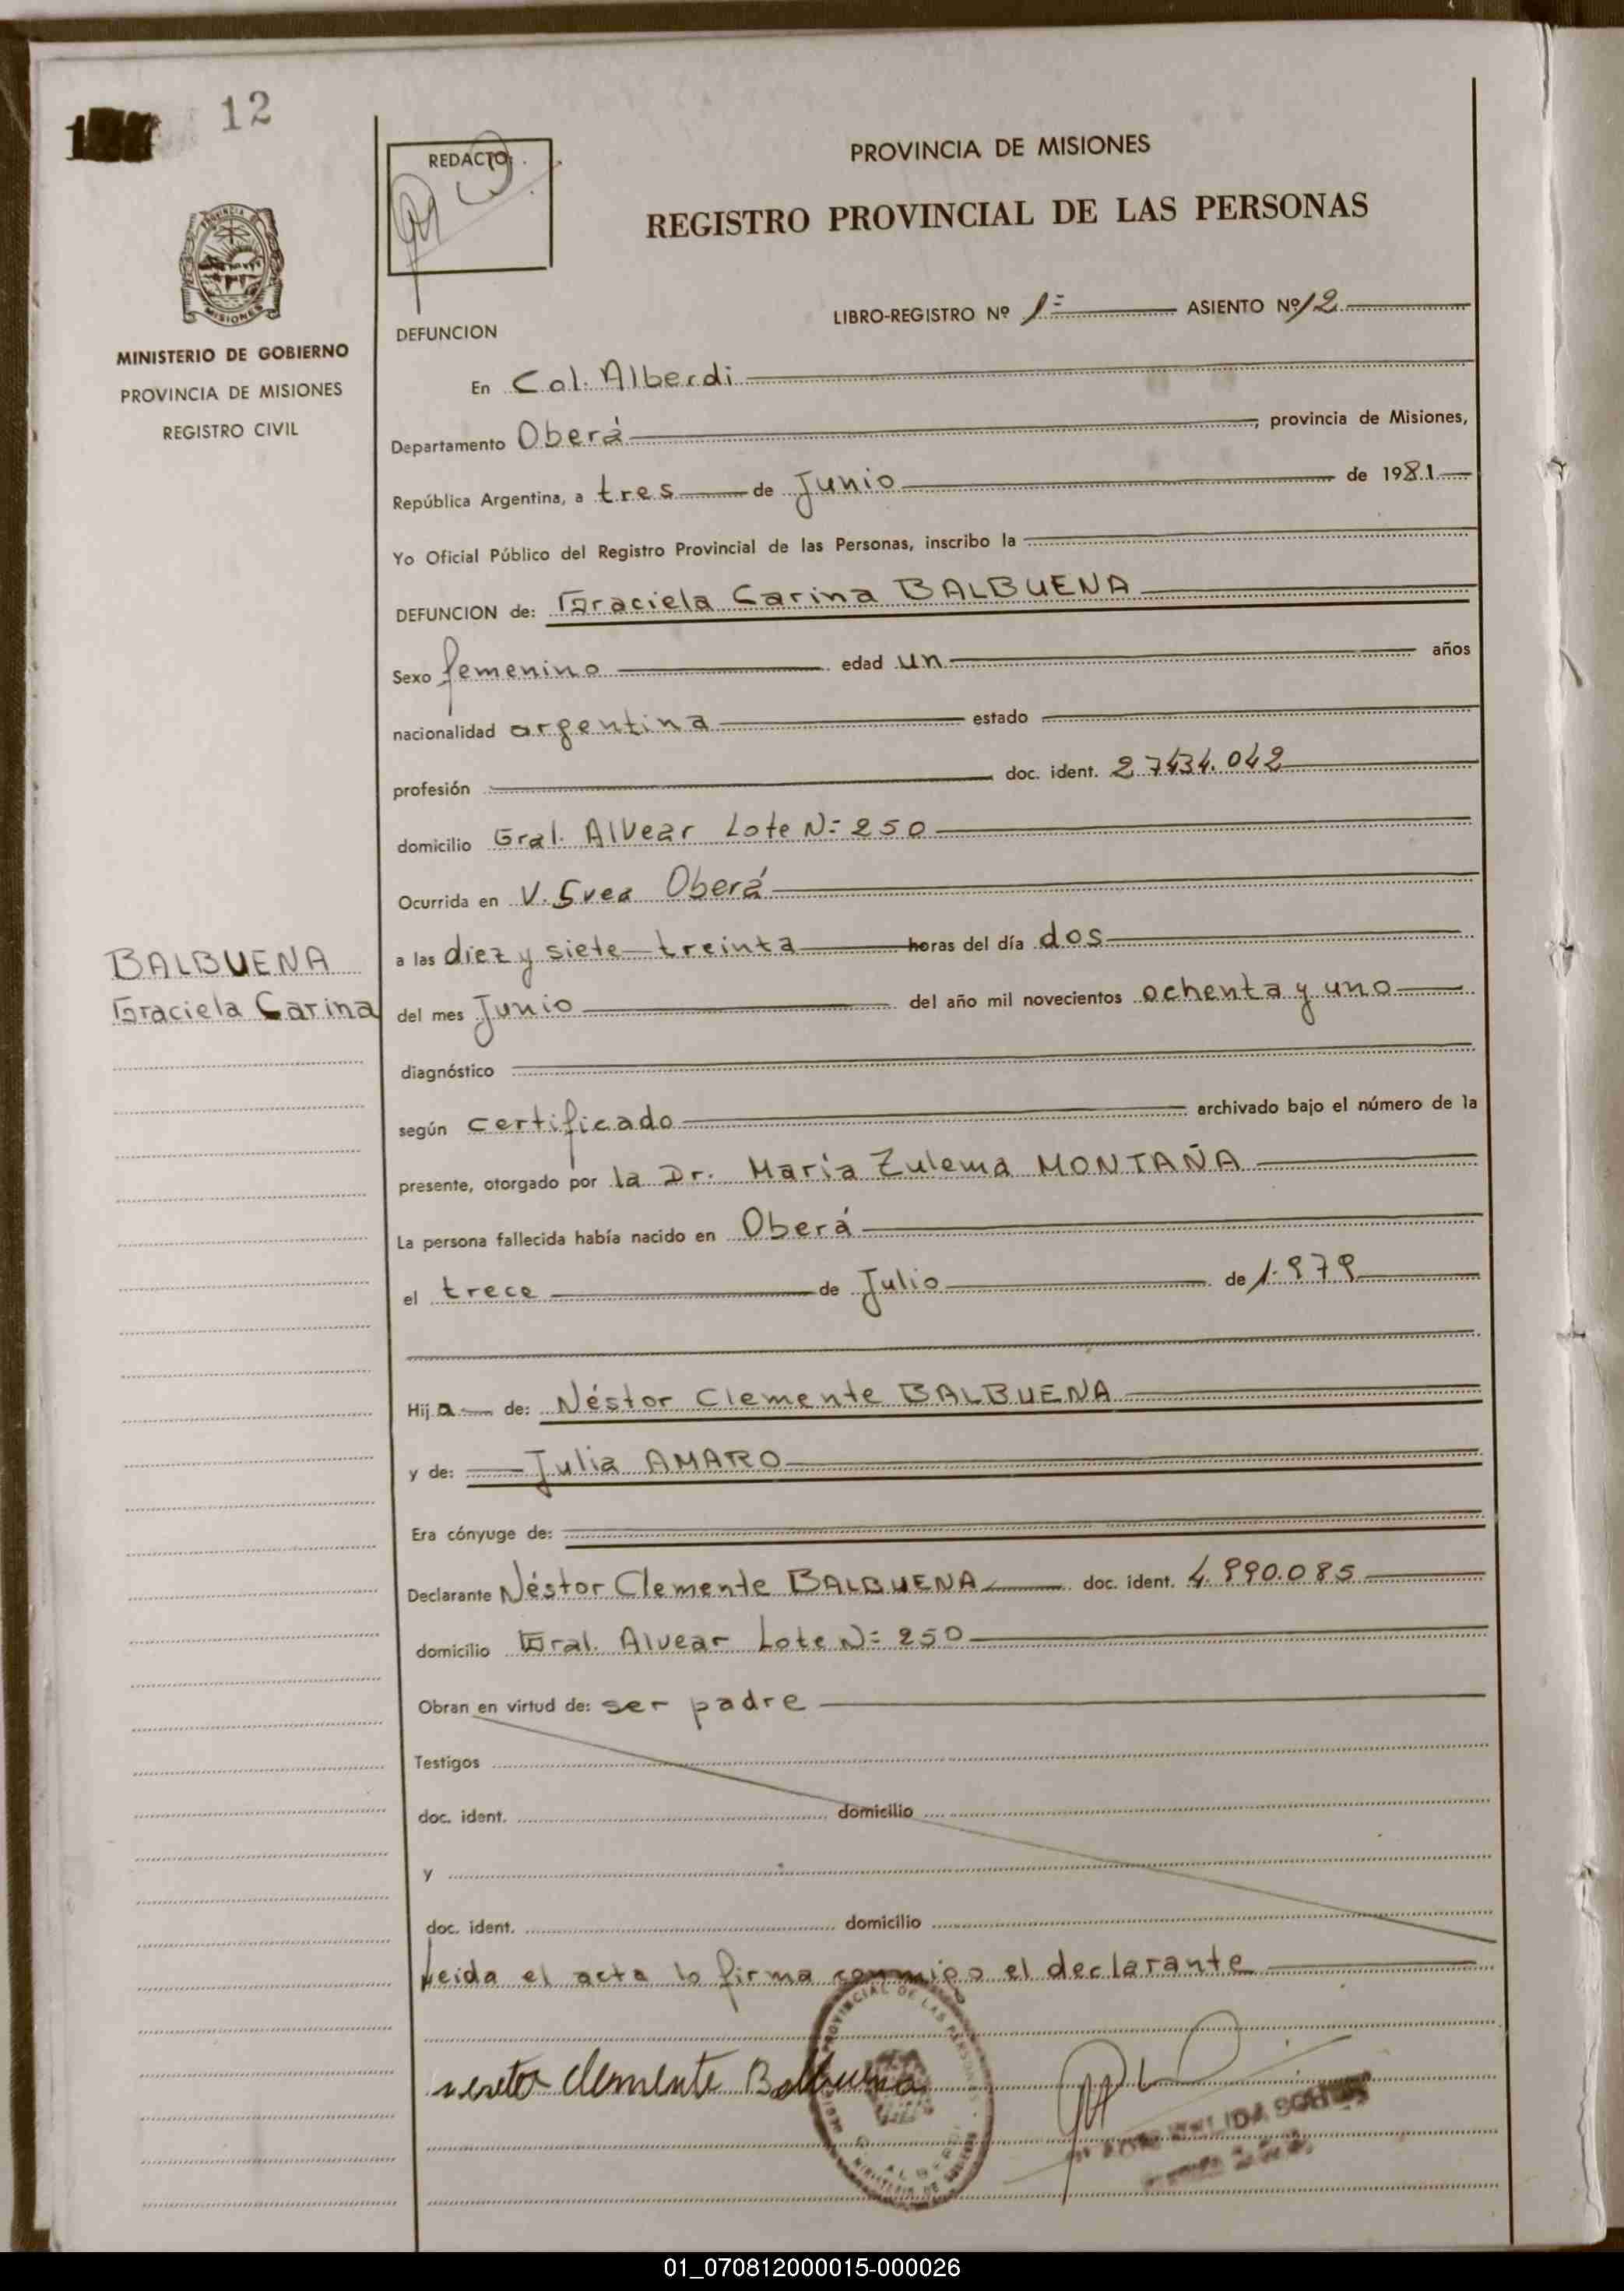 12
REDACTO:
PROVINCIA DE MISIONES
REGISTRO PROVINCIAL DE LAS PERSONAS
PROVINCIA DE
MISIONES
MINISTERIO DE GOBIERNO
PROVINCIA DE MISIONES
REGISTRO CIVIL
LIBRO-REGISTRO Nº 1= ASIENTO Nº 12
DEFUNCION
En Col. Alberdi
Departamento Oberá, provincia de Misiones,
República Argentina, a tres de Junio de 1981
Yo Oficial Público del Registro Provincial de las Personas, inscribo la
DEFUNCION de: Graciela Carina BALBUENA
Sexo femenino edad un años
nacionalidad argentina estado
profesión doc. ident. 27434.042
domicilio Gral. Alvear Lote N= 250
Ocurrida en V. Svea Oberá
BALBUENA
Graciela Carina
a las diez y siete treinta horas del día dos
del mes Junio del año mil novecientos ochenta y uno
diagnóstico
según certificado archivado bajo el número de la
presente, otorgado por la Dr. María Zulema MONTAÑA
La persona fallecida había nacido en Oberá
el trece de Julio de 1.979
Hij a de: Néstor Clemente BALBUENA
y de: Julia AMARO
Era cónyuge de:
Declarante Néstor Clemente BALBUENA doc. ident. 4.990.085
domicilio Gral. Alvear Lote N= 250
Obran en virtud de: ser padre
Testigos
doc. ident. domicilio
y
doc. ident. domicilio
Leida el acta lo firma conmigo el declarante
Clemente Balbuena
01_070812000015-000026